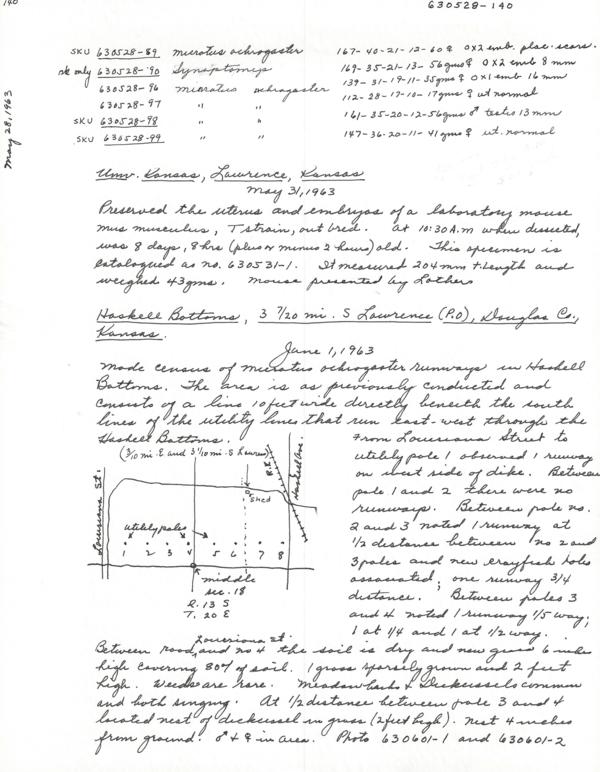 140
630528-140
May 28, 1963
SKU 630528-89 Microtus ochrogaster 167-40-21-12-60 ♀ 0X2 emb. plac. scars.
sk only 630528-90 Synaptomys 169-35-21-13-56gms ♀ 0X2 emb 8 mm
630528-96 Microtus ochrogaster 139-31-19-11-35gms ♀ 0X1 emb 16 mm
630528-97 " " 112-28-17-10-17gms ♀ ut normal
SKU 630528-98 " " 161-35-20-12-56gms ♂ testis 13 mm
SKU 630528-99 " " 147-36-20-11-41gms ♀ ut. normal
Univ. Kansas, Lawrence, Kansas
May 31, 1963
Preserved the uterus and embryos of a laboratory mouse
mus musculus, T strain, out bred. At 10:30 A.M when dissected,
was 8 days, 8 hrs (plus or minus 2 hours) old. This specimen is
catalogued as no. 630531-1. It measured 204 mm t. length and
weighed 43gms. Mouse presented by
Haskell Bottoms, 3 7/20 mi. S Lawrence (P.O), Douglas Co.,
Kansas.
June 1, 1963
Made census of microtus ochrogaster runways in Haskell
Bottoms. The area is as previously conducted and
consists of a line 10 feet wide directly beneath the south
lines of the utility lines that run east-west through the
Haskell Bottoms.
(3/10 mi. E and 3 1/10 mi. S Lawrence)
Louisiana St.
R.R.
Haskell Ave.
Shed
utility poles
1 2 3 4 5 6 7 8
middle
sec. 18
R. 13 S
T. 20 E
From Louisiana Street to
utility pole 1 observed 1 runway
on west side of dike. Between
pole 1 and 2 there were no
runways. Between pole no.
2 and 3 noted 1 runway at
1/2 distance between no 2 and
3 poles and new crayfish holes
associated; one runway 3/4
distance. Between poles 3
and 4 noted 1 runway 1/5 way;
1 at 1/4 and 1 at 1/2 way.
Louisiana St.
Between road, and no 4 the soil is dry and new grass 6 inches
high covering 80% of soil. 1 grass sparsely grown and 2 feet
high. Weeds are rare. Meadowlarks & Dickcissels common
and both singing. At 1/2 distance between pole 3 and 4
located nest of dickcissel in grass (2 feet high). Nest 4 inches
from ground. ♂ + ♀ in area. Photo 630601-1 and 630601-2